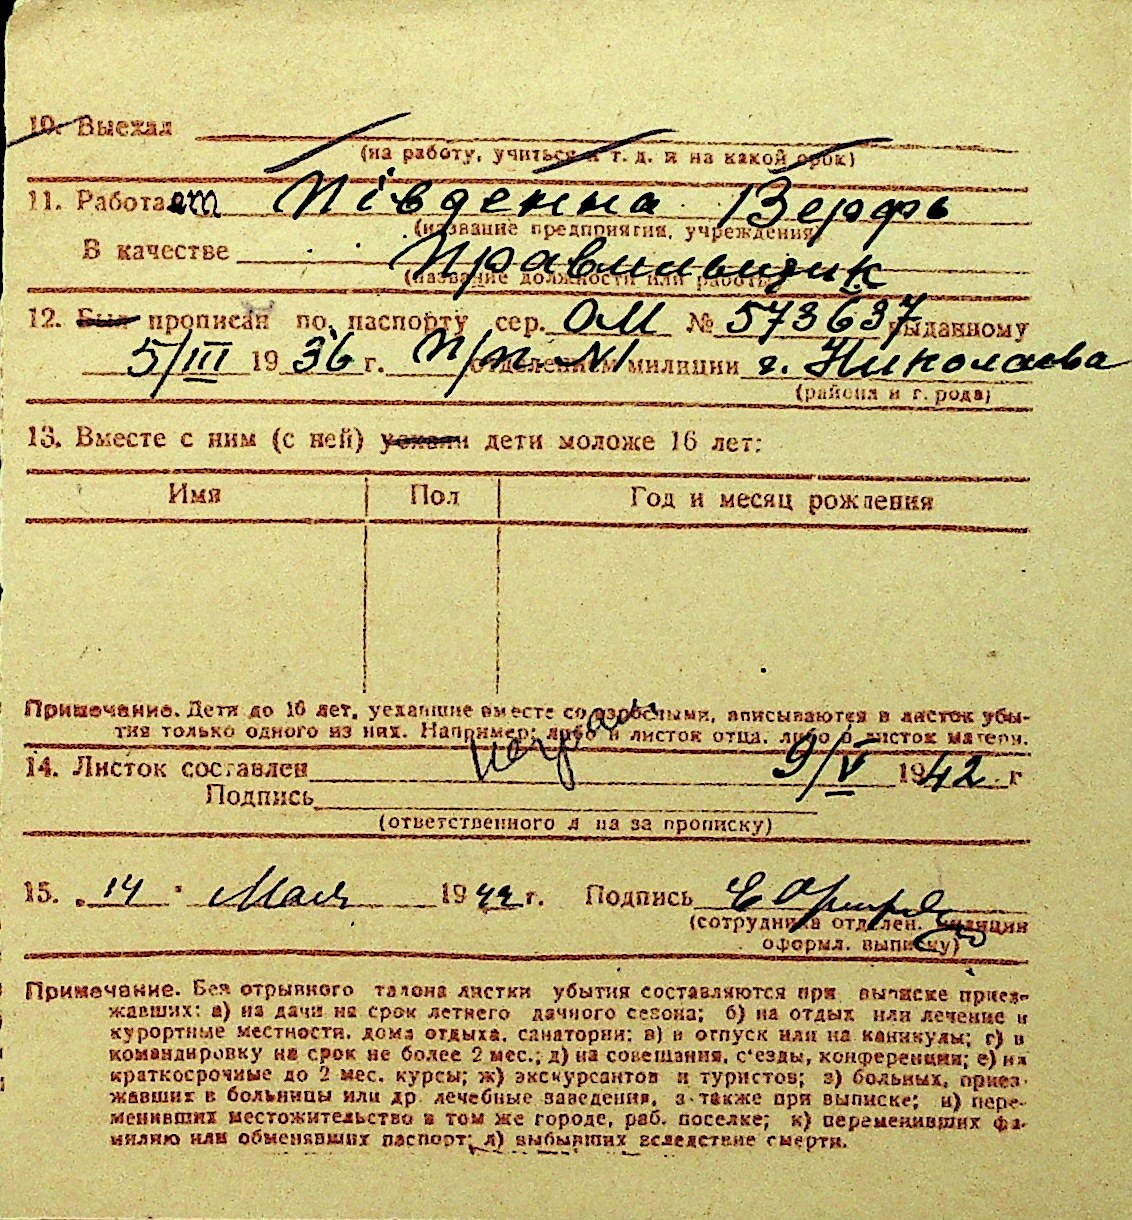 10. Выехал
(на работу, учиться и т. д. и на какой срок)
11. Работает Південна Верфь
(название предприятия, учреждения)
В качестве Правильщик
(название должности или работы)
12. Был прописан по паспорту сер. ОМ № 573637 выданному
5/III 1936 г. П/п. №1 отделением милиции г. Николаева
(района и города)
13. Вместе с ним (с ней) уехали дети моложе 16 лет:
Имя Пол Год и месяц рождения
Примечание. Дети до 16 лет, уехавшие вместе со взрослыми, вписываются в листок убы-
тия только одного из них. Например: либо в листок отца, либо в листок матери.
14. Листок составлен 9/V 1942 г
Подпись
(ответственного л на за прописку)
15. „14" Мая 1942 г. Подпись
(сотрудника отделен. милиции
оформл. выписку)
Примечание. Без отрывного талона листки убытия составляются при выписке приез-
жавших: а) на дачи на срок летнего дачного сезона; б) на отдых или лечение в
курортные местности, дома отдыха, санатории; в) в отпуск или на каникулы; г) в
командировку на срок не более 2 мес.; д) на совещания, с'езды, конференции; е) на
краткосрочные до 2 мес. курсы; ж) экскурсантов и туристов; з) больных, приез-
жавших в больницы или др лечебные заведения, а также при выписке; и) пере-
менивших местожительство в том же городе, раб. поселке; к) переменивших фа-
милию или обменявших паспорт; л) выбывших вследствие смерти.